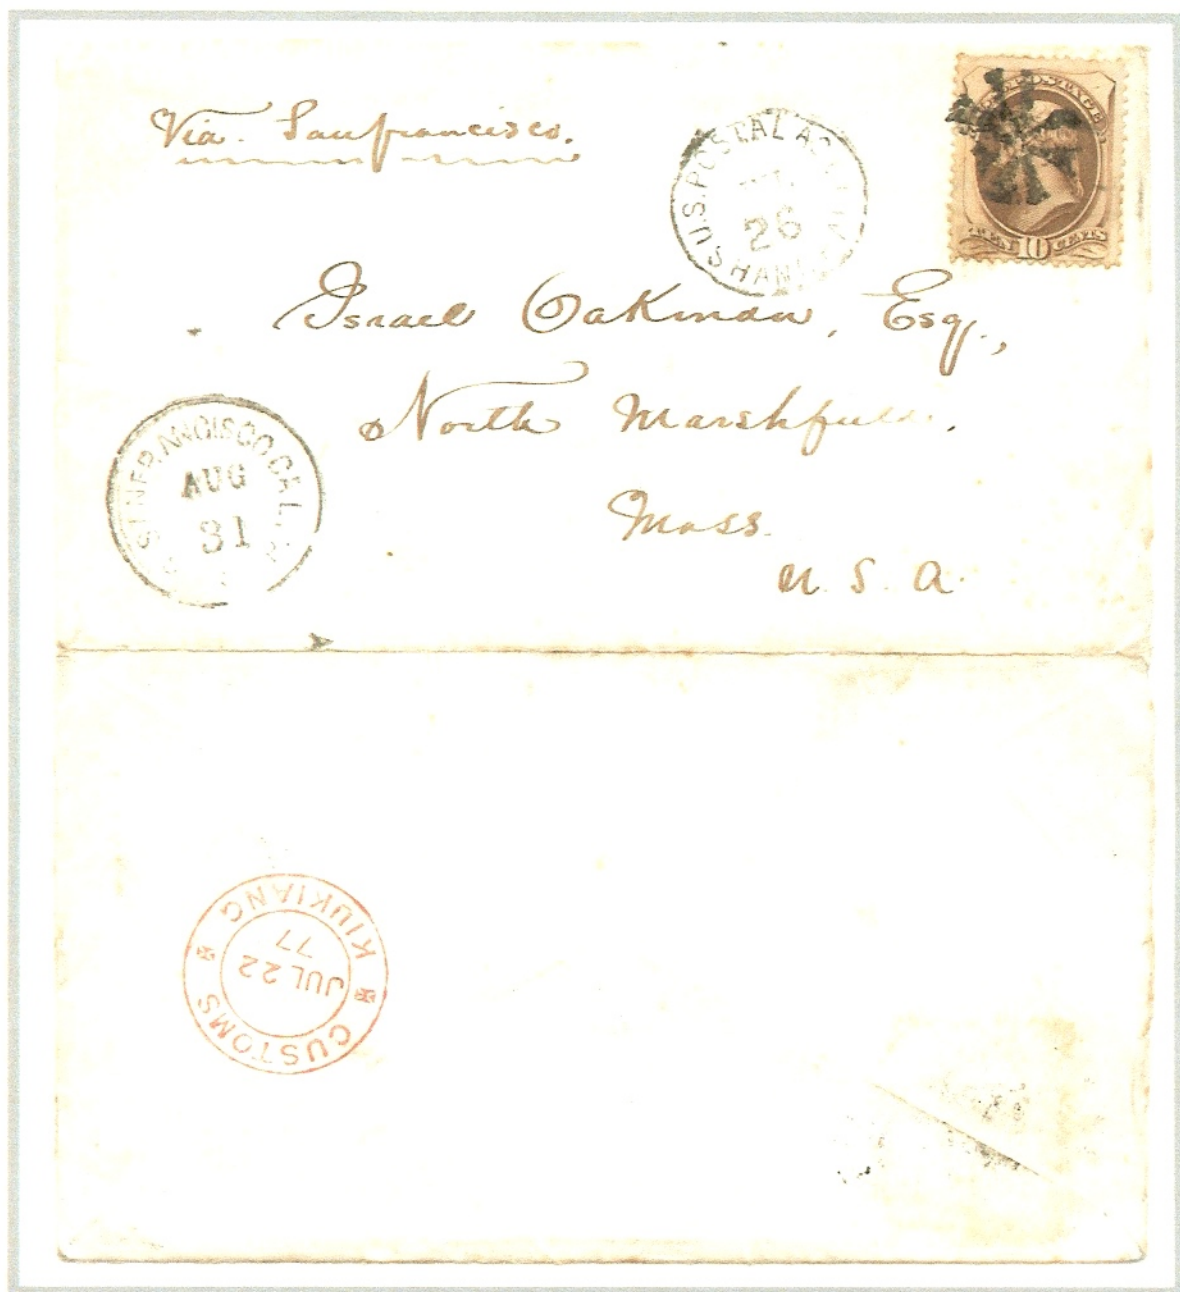 Via. Sanfrancisco.
U.S. POSTAL AGCY
26
SHANGHAI
U.S. POSTAGE
TEN 10 CENTS
Israel Oakman, Esq.,
North Marshfield.
Mass.
U. S. A.
SAN FRANCISCO CAL.
AUG
31
CUSTOMS
JUL 22
77
KIUKIANG